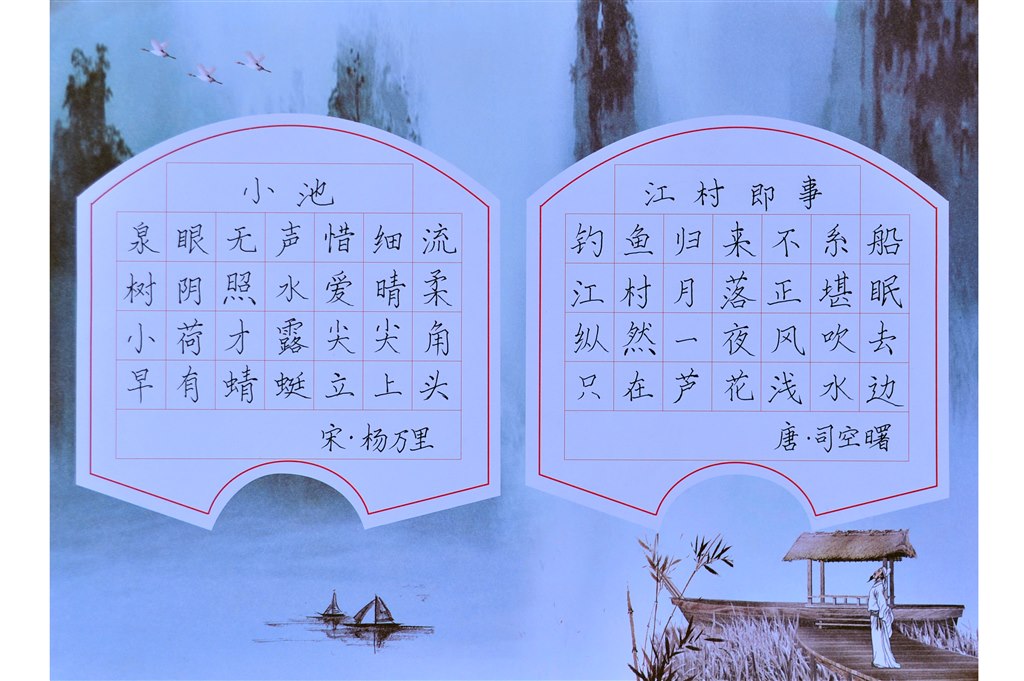 小池
泉眼无声惜细流
树阴照水爱晴柔
小荷才露尖尖角
早有蜻蜓立上头
宋·杨万里
江村即事
钓鱼归来不系船
江村月落正堪眠
纵然一夜风吹去
只在芦花浅水边
唐·司空曙